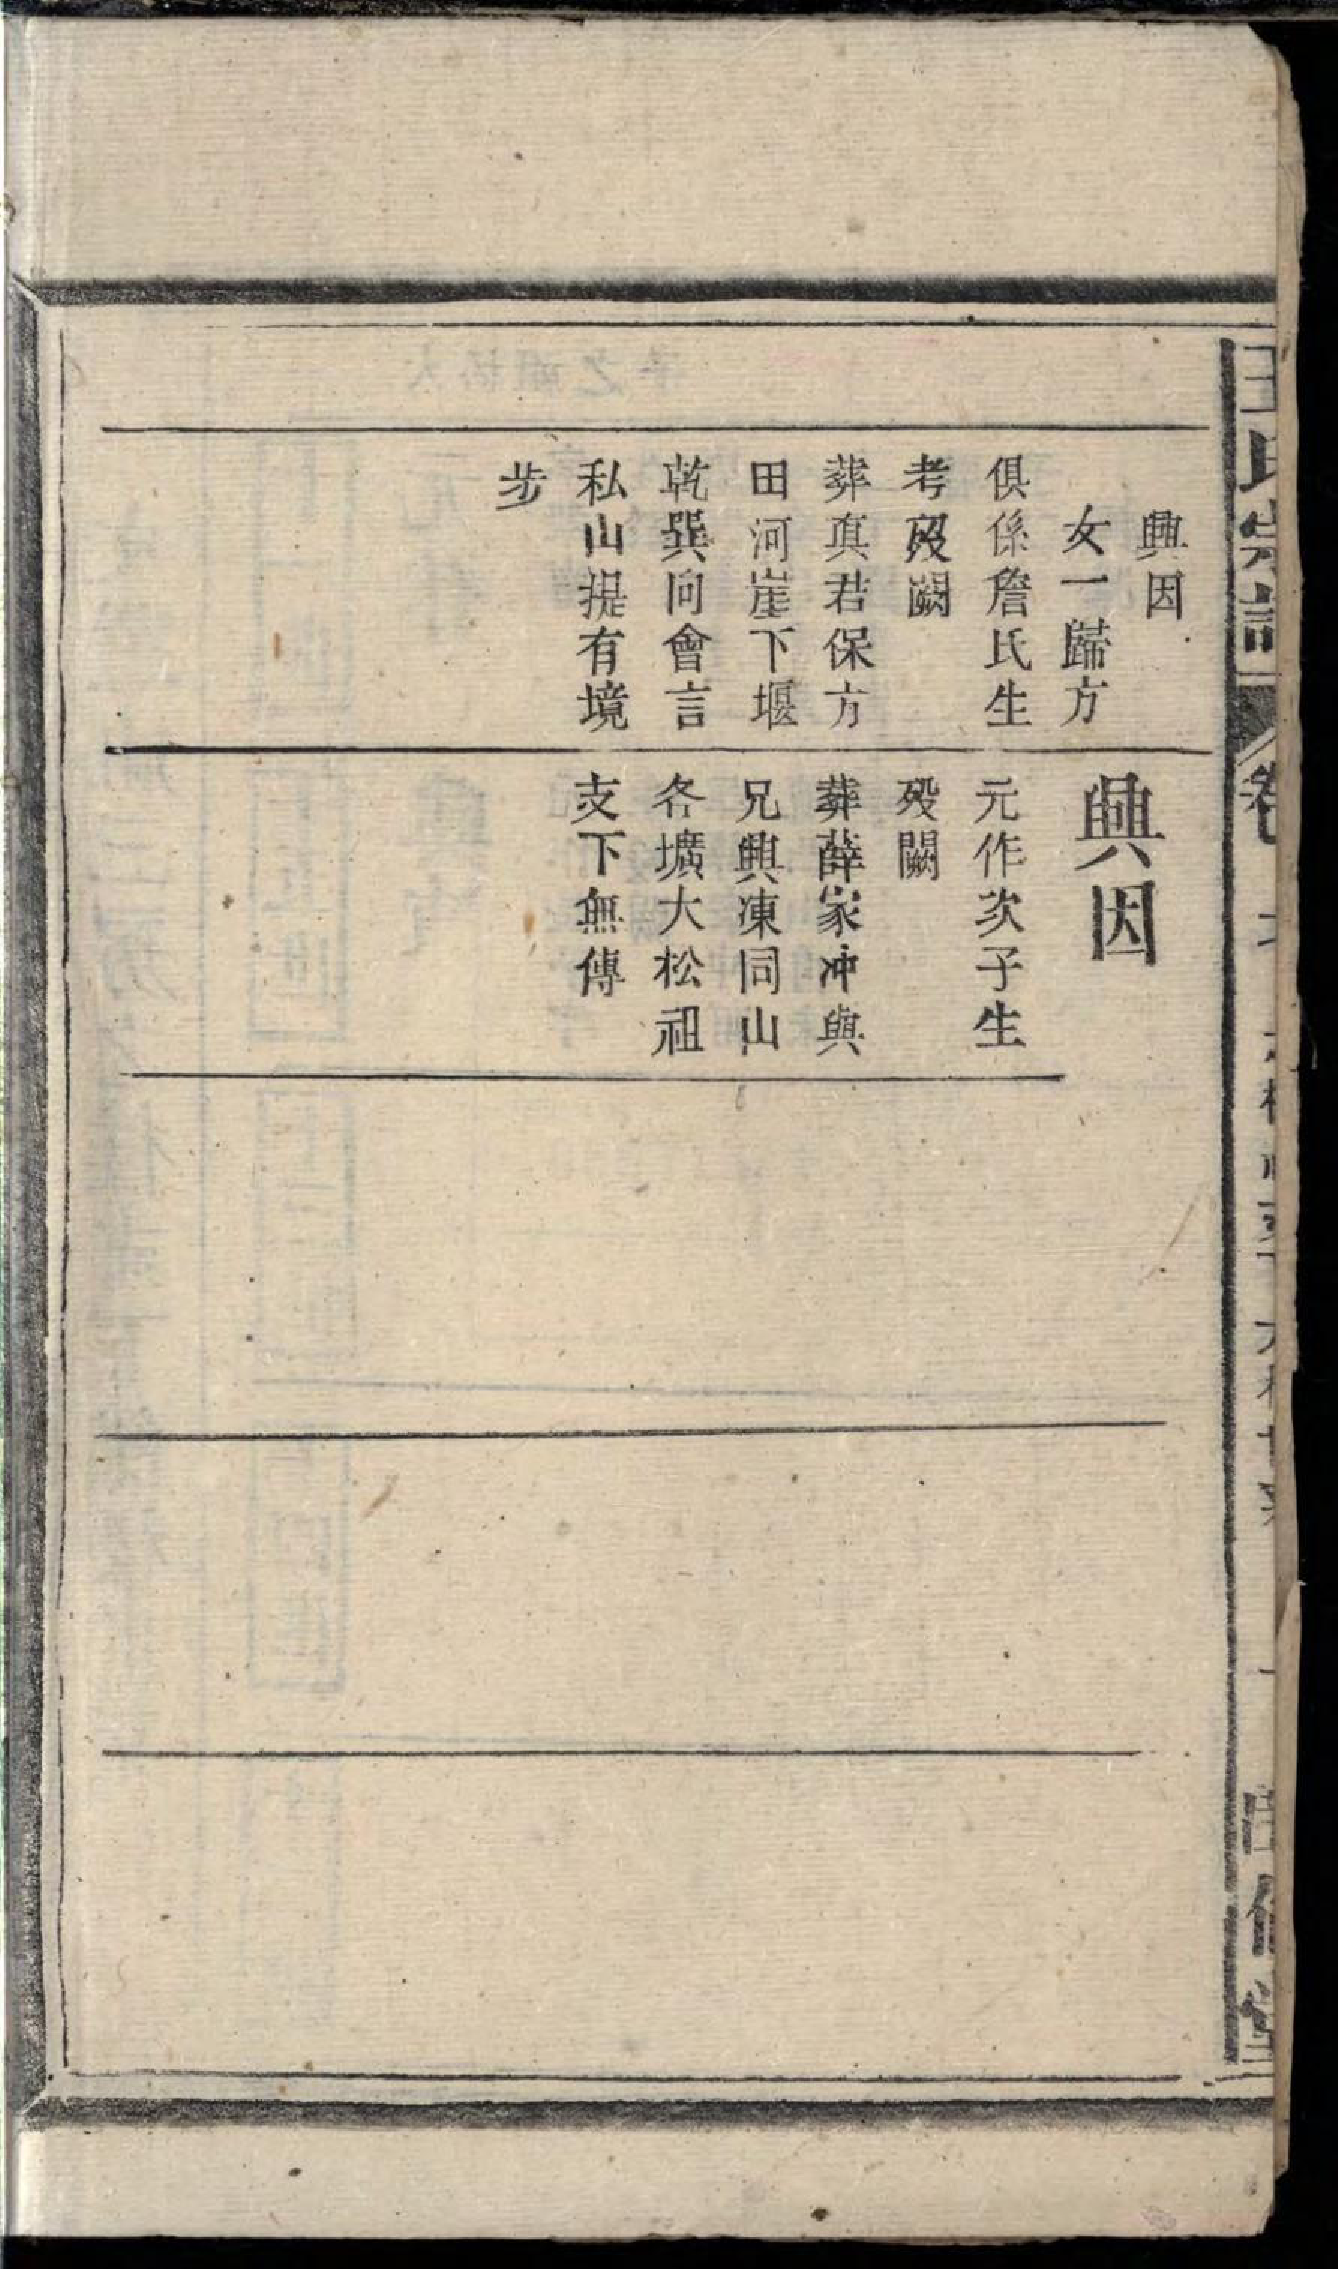 王氏宗譜
卷
興因
女一歸方
俱係詹氏生
考歿闕
葬真君保方
田河崖下堰
乾巽向會言
私山提有境
步
興因
元作次子生
歿闕
葬薛家冲與
兄興凍同山
各壙大松祖
支下無傳